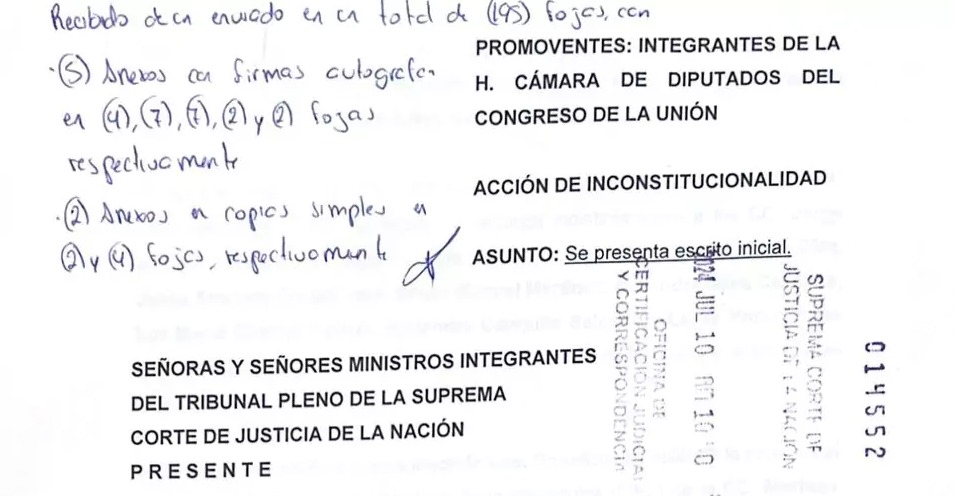 Recibido de un enviado en un total de (195) fojas, con
·(5) Anexos con firmas autografas
en (4), (7), (7), (2) y (2) fojas
respectivamente
·(2) Anexos en copias simples en
(2) y (4) fojas, respectivamente
PROMOVENTES: INTEGRANTES DE LA
H. CÁMARA DE DIPUTADOS DEL
CONGRESO DE LA UNIÓN
ACCIÓN DE INCONSTITUCIONALIDAD
ASUNTO: Se presenta escrito inicial.
SEÑORAS Y SEÑORES MINISTROS INTEGRANTES
DEL TRIBUNAL PLENO DE LA SUPREMA
CORTE DE JUSTICIA DE LA NACIÓN
P R E S E N T E
SUPREMA CORTE DE
JUSTICIA DE LA NACIÓN
JUL 10
OFICINA DE
CERTIFICACIÓN JUDICIAL
Y CORRESPONDENCIA
014552